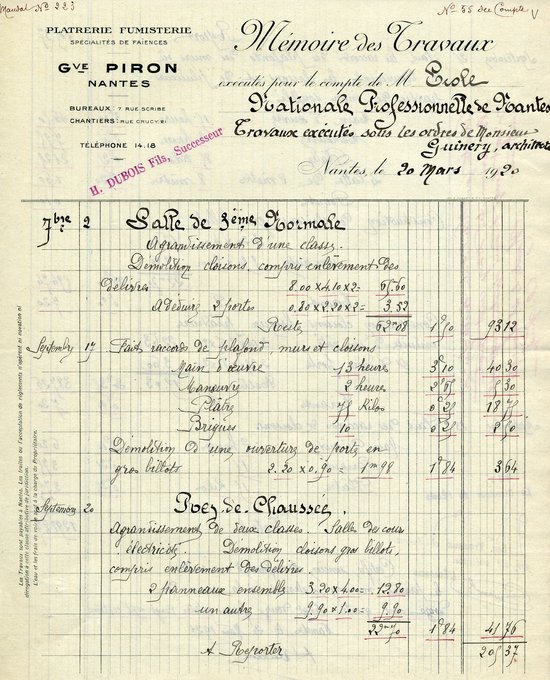 Mandat No 223
No 55 du Compte V
PLATRERIE FUMISTERIE
SPÉCIALITÉS DE FAIENCES
GVE PIRON
NANTES
BUREAUX : 7 RUE SCRIBE
CHANTIERS : RUE CRUCY 21
TÉLÉPHONE 14.18
H. DUBOIS Fils, Successeur
Mémoire des Travaux
exécutés pour le compte de M Ecole
Nationale Professionnelle de Nantes
Travaux exécutés sous les ordres de Monsieur
Guinery, architecte
Nantes, le 20 Mars 1920
7bre 2 Salle de 3ème Normale
Agrandissement d'une classe.
Démolition cloisons, compris enlèvement des
délivres 8.00 x 4.10 x 2 = 65.60
A déduire 2 portes 0.80 x 2.20 x 2 = 3.52
Reste 62.08 1f50 93 12
Septembre 17 Faits raccords de plafond, murs et cloisons
Main d'œuvre 13 heures 3f10 40 30
Manœuvre 2 heures 2f65 5 30
Plâtre 75 Kilos 0f25 18 75
Briques 10 0f25 2 50
Démolition d'une ouverture de porte en
gros billots 2.20 x 0.90 = 1m98 1f84 3 64
Septembre 20 Rez-de-Chaussée.
Agrandissement de deux classes. Salles des cours
électricité. Démolition cloisons gros billots,
compris enlèvement des délivres.
2 panneaux ensemble 3.20 x 4.00 = 12.80
un autre 9.90 x 1.00 = 9.90
22m70 1f84 41 76
A Reporter 205 37
Les Travaux sont payables à Nantes. Les traites ou l'acceptation de règlements n'opèrent ni novation ni
dérogation à cette clause attributive de juridiction.
L'eau et les frais en résultant sont à la charge du Propriétaire.